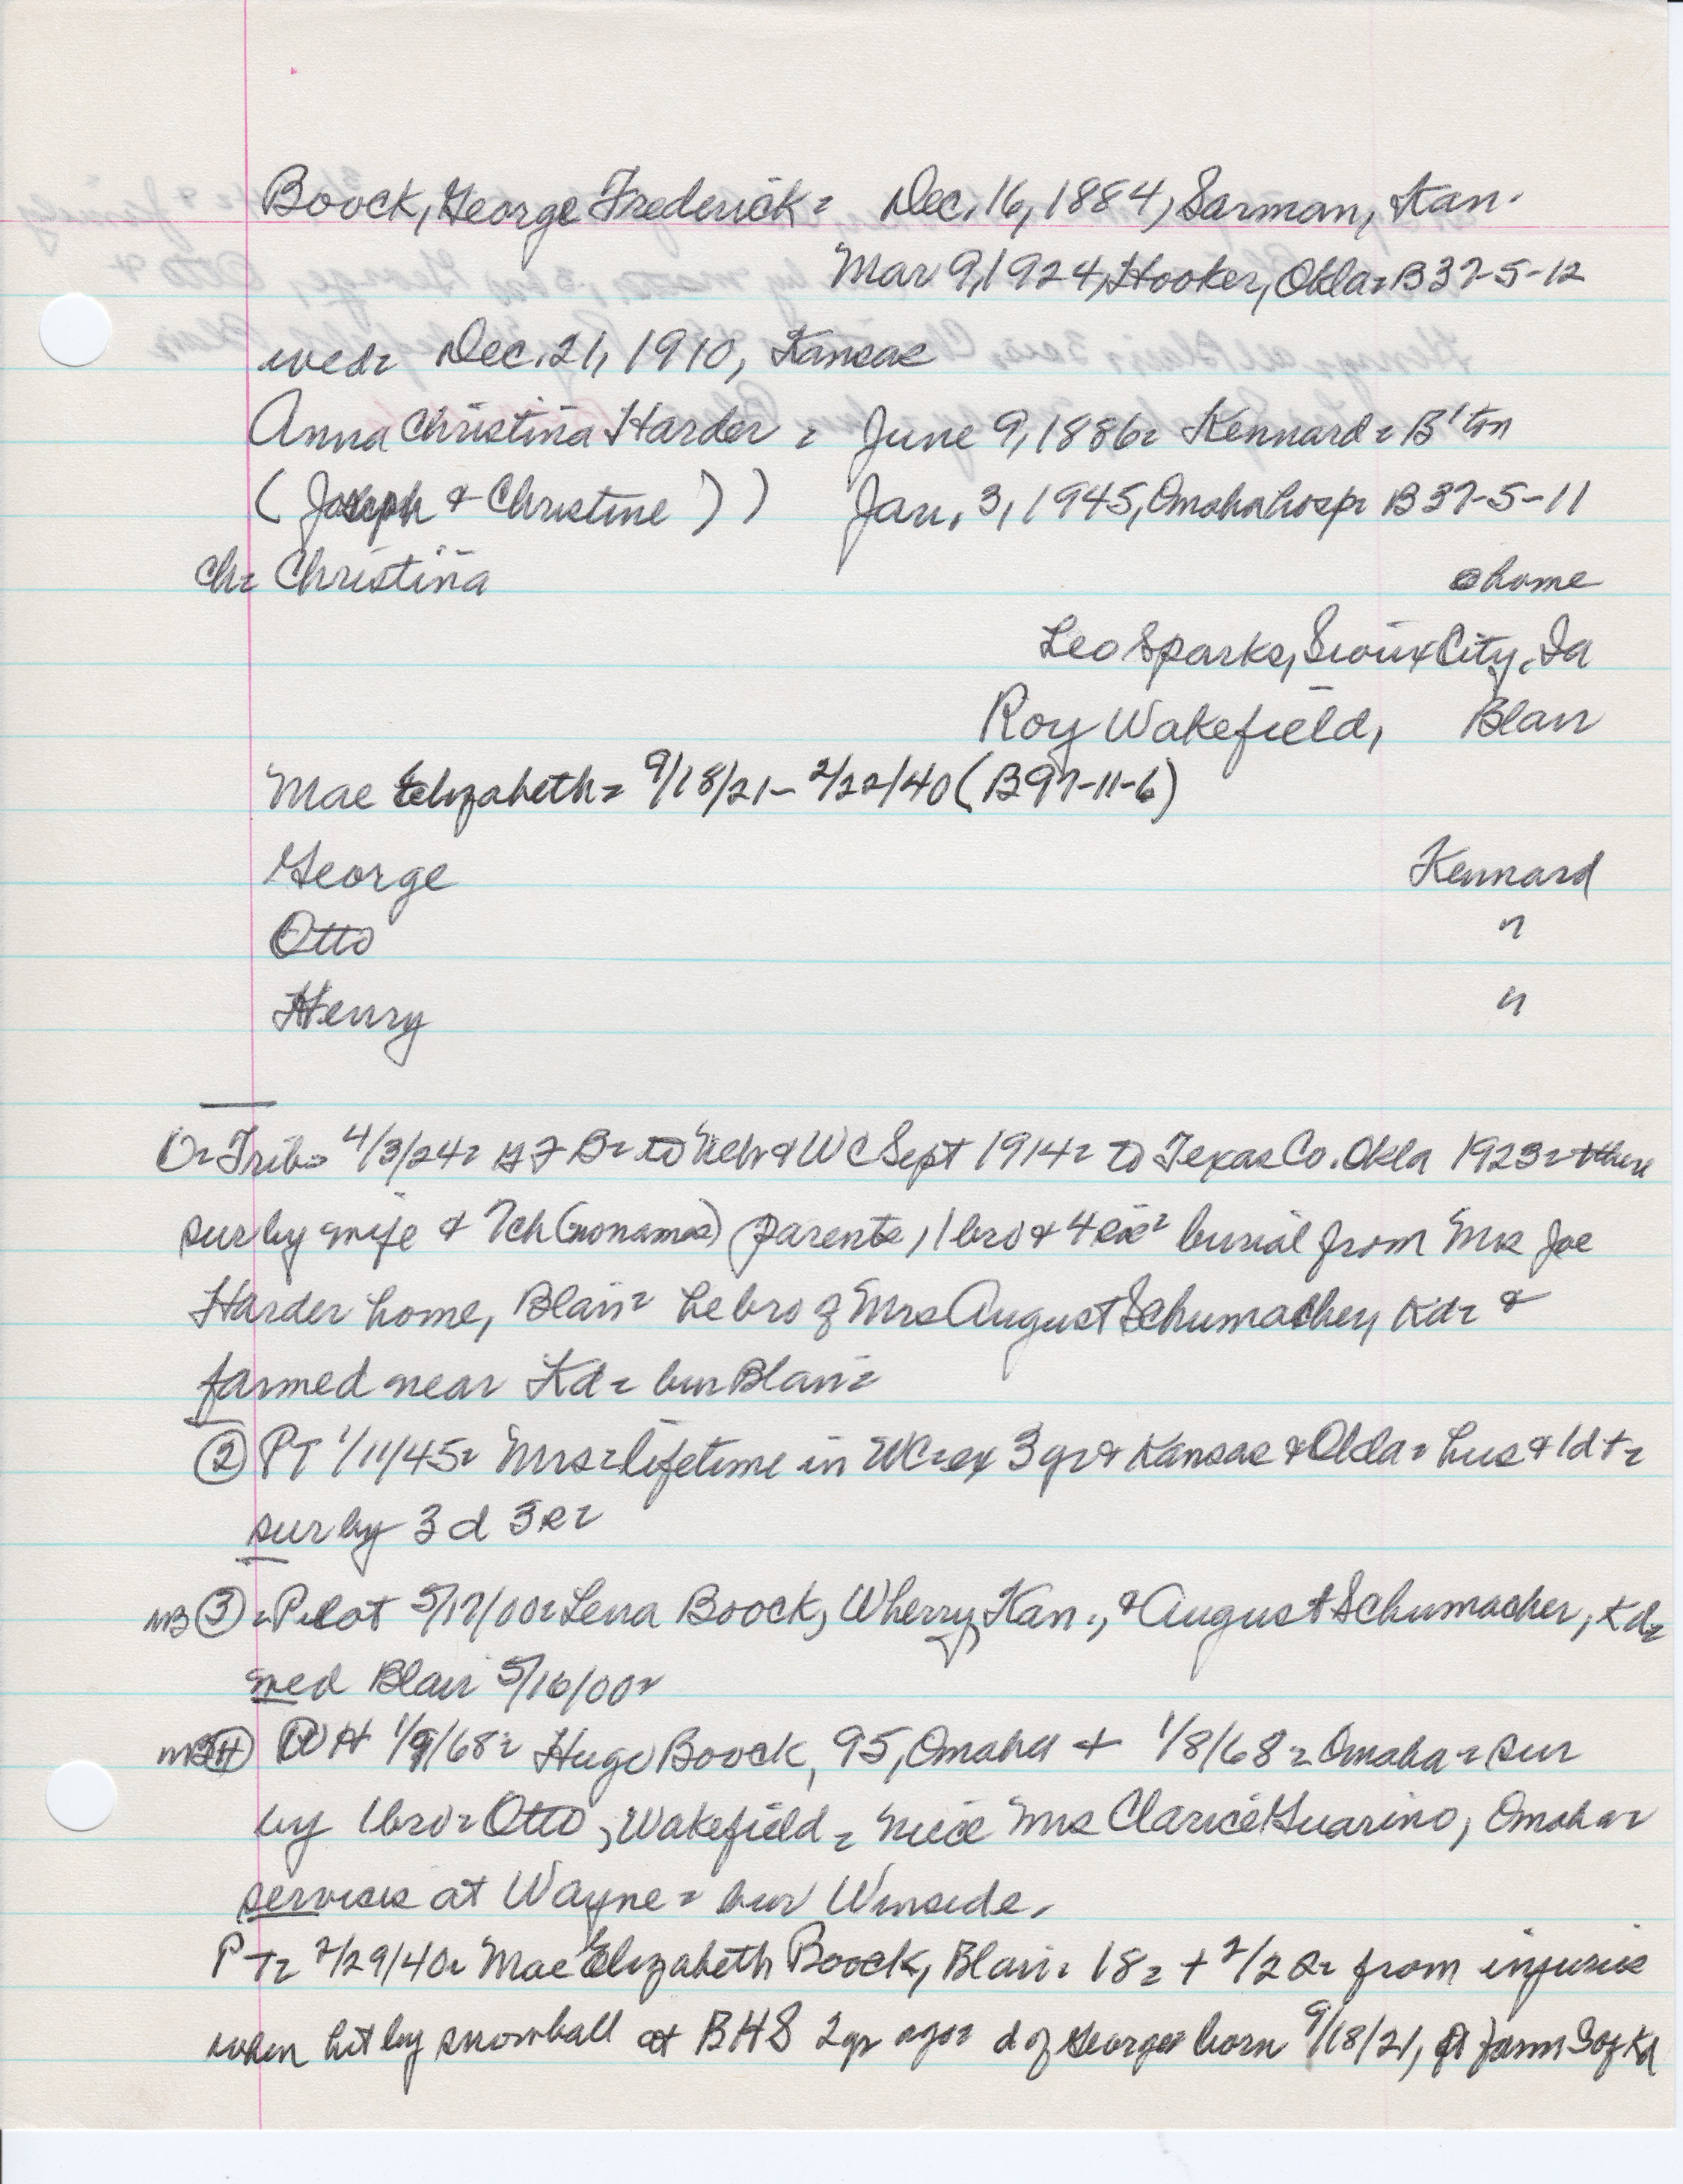 Boock, George Frederick = Dec. 16, 1884, Sarman, Kan.
Mar 9, 1924, Hooker, Okla = B 37-5-12
wed = Dec. 21, 1910, Kansas
Anna Christina Harder = June 9, 1886 = Kennard = B'ton
(Joseph & Christine)) Jan. 3, 1945, Omaha hosp = B 37-5-11
ch = Christina @ home
Leo Sparks, Sioux City, Ia
Roy Wakefield, Blair
Mae Elizabeth = 9/18/21 - 2/22/40 (B 97-11-6)
George Kennard
Otto "
Henry "
① = Trib = 4/3/24 = G F B = to Neb & WC Sept 1914 = to Texas Co. Okla 1923 = + there
sur by wife & 7 ch (no names) parents, 1 bro & 4 sis = burial from Mrs Joe
Harder home, Blair = he bro of Mrs August Schumacher, Kd = &
farmed near Kd = bur Blair =
② PT 1/11/45 = Mrs = lifetime in WC = ex 3 yr @ Kansas & Okla = hus & 1 d + =
sur by 3 d 3 s =
NB ③ = Pilot 5/17/00 = Lena Boock, Wherry, Kan., & August Schumacher, Kd =
wed Blair 5/16/00 =
NB ④ WH 1/9/68 = Hugo Boock, 95, Omaha + 1/8/68 = Omaha = sur
by 1 bro = Otto, Wakefield = niece Mrs Clarice Guarino, Omaha =
services at Wayne = bur Winside.
PT = 2/29/40 = Mae Elizabeth Boock, Blair = 18 = + 2/22 = from injuries
when hit by snowball at BHS 2 yr ago = d of George = born 9/18/21, @ farm S of Kd